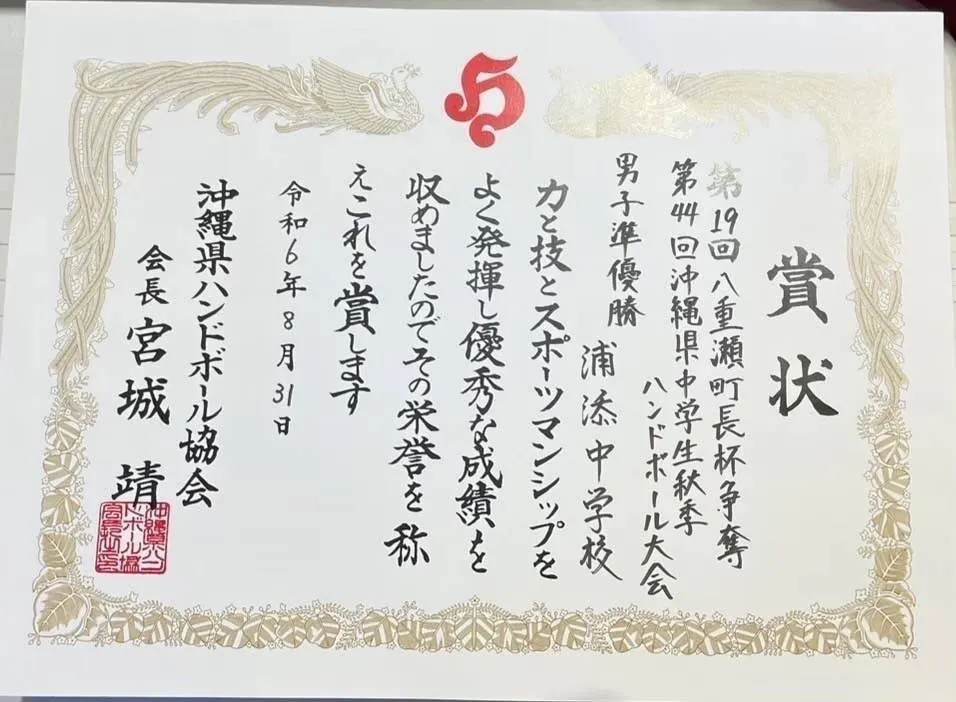 賞状
第19回八重瀬町長杯争奪
第44回沖縄県中学生秋季
ハンドボール大会
男子準優勝
浦添中学校
力と技とスポーツマンシップを
よく発揮し優秀な成績を
収めましたのでその栄誉を称
えこれを賞します
令和6年8月31日
沖縄県ハンドボール協会
会長 宮城 靖